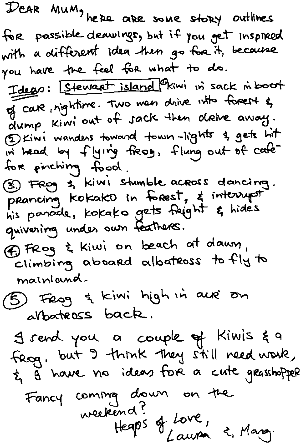 DEAR MUM,
here are some story outlines
for possible drawings, but if you get inspired
with a different idea then go for it, because
you have the feel for what to do.
Ideas: Stewart island ① Kiwi in sack in boot
of car, nightime. Two men drive into forest &
dump kiwi out of sack then drive away.
② Kiwi wanders toward town-lights & gets hit
in head by flying frog, flung out of cafe
for pinching food.
③ Frog & kiwi stumble across dancing,
prancing kokako in forest, & interrupt
his parade, kokako gets fright & hides
quivering under own feathers.
④ Frog & kiwi on beach at dawn,
climbing aboard albatross to fly to
mainland.
⑤ Frog & kiwi high in air on
albatross back.
I send you a couple of kiwis & a
frog, but I think they still need work,
& I have no ideas for a cute grasshopper
Fancy coming down on the
weekend?
Heaps of Love,
Laura &